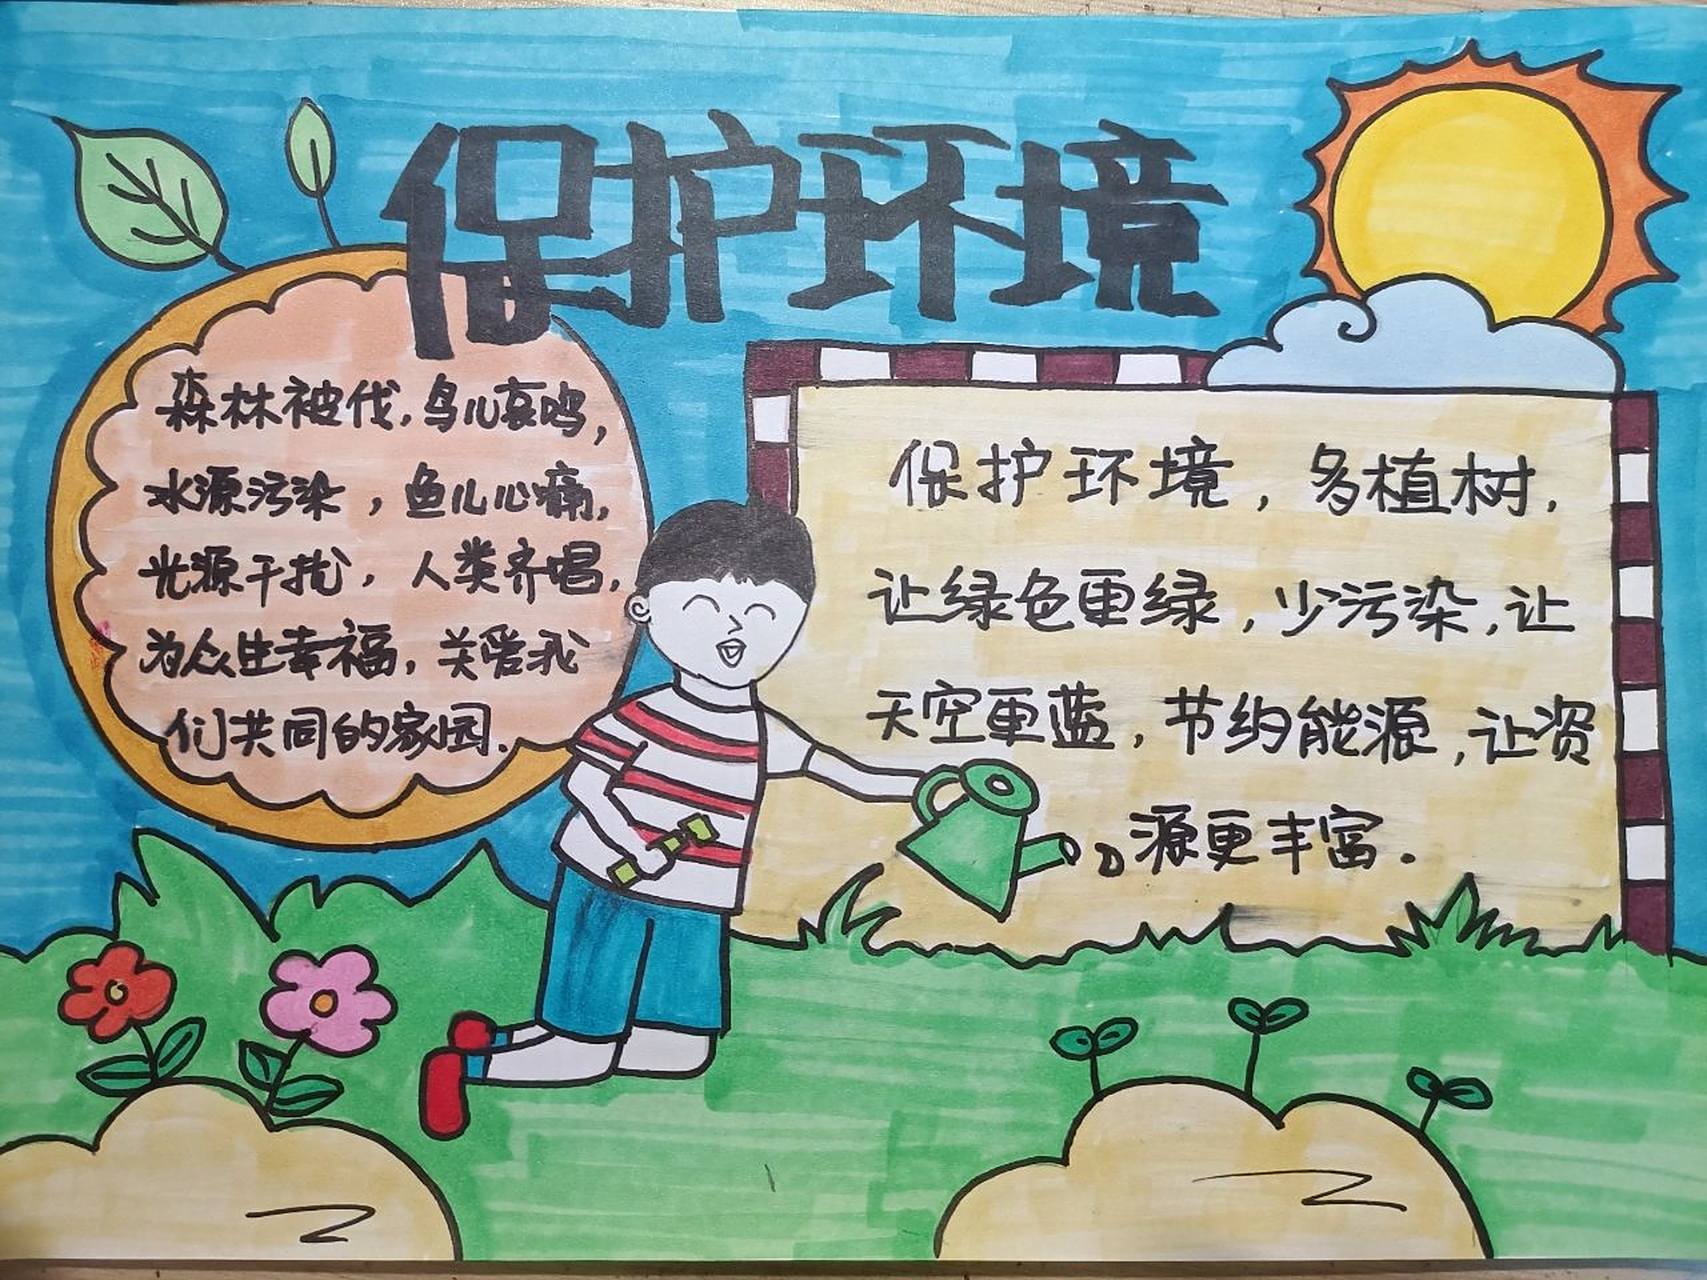 保护环境
森林被伐,鸟儿哀鸣,
水源污染,鱼儿心痛,
光源干扰,人类齐唱,
为众生幸福,关爱我
们共同的家园.
保护环境,多植树,
让绿色更绿,少污染,让
天空更蓝,节约能源,让资
源更丰富.